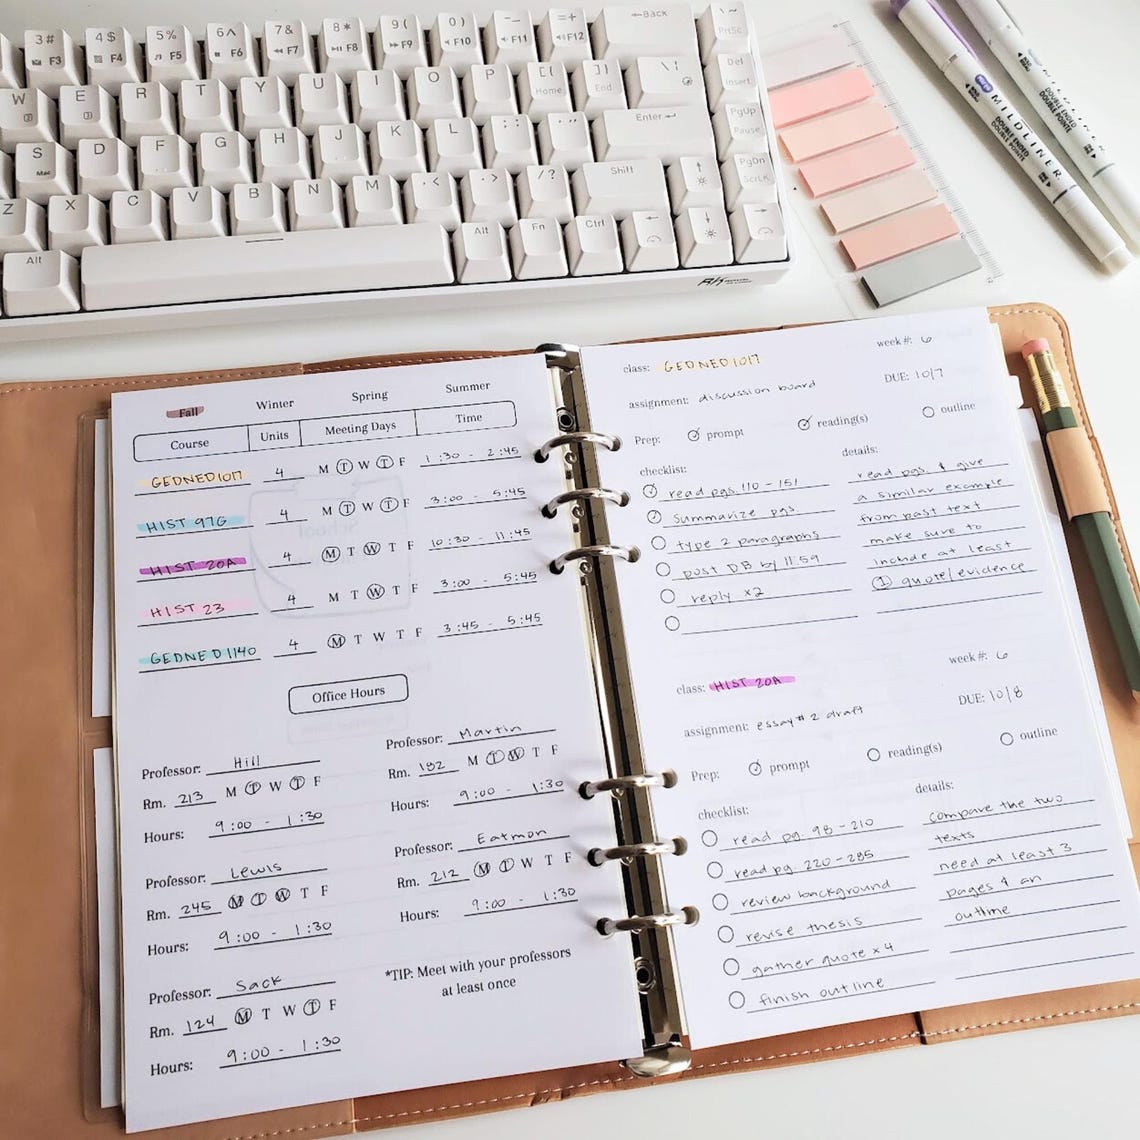 3# 4$ 5% 6^ 7& 8* 9( 0) -- =+ ←Back
F3 F4 F5 F6 F7 F8 F9 F10 F11 F12 PrtSc
W E R T Y U I O P [{ ]} \¦ Del
Home End Insert
S D F G H J K L ;: '" Enter PgUp
Mac Pause
Z X C V B N M ,< .> /? Shift PgDn
ScrLK
Alt Alt Fn Ctrl
MILDLINER
DOUBLE ENDED
DOUBLE POINTS
MILDLINER
DOUBLE ENDED
DOUBLE POINTS
Fall Winter Spring Summer
Course Units Meeting Days Time
GEDNED1017 4 M T W T F 1:30 - 2:45
HIST 97G 4 M T W T F 3:00 - 5:45
HIST 20A 4 M T W T F 10:30 - 11:45
HIST 23 4 M T W T F 3:00 - 5:45
GEDNED1140 4 M T W T F 3:45 - 5:45
Office Hours
Professor: Hill
Rm. 213 M T W T F
Hours: 9:00 - 1:30
Professor: Lewis
Rm. 245 M T W T F
Hours: 9:00 - 1:30
Professor: Sack
Rm. 124 M T W T F
Hours: 9:00 - 1:30
Professor: Martin
Rm. 182 M T W T F
Hours: 9:00 - 1:30
Professor: Eatmon
Rm. 212 M T W T F
Hours: 9:00 - 1:30
*TIP: Meet with your professors
at least once
class: GEDNED1017 week#: 6
assignment: discussion board DUE: 10/7
Prep: prompt reading(s) outline
checklist:
read pgs. 110 - 151
summarize pgs
type 2 paragraphs
post DB by 11:59
reply x2
details:
read pgs. & give
a similar example
from past text
make sure to
include at least
① quote/evidence
class: HIST 20A week#: 6
assignment: essay #2 draft DUE: 10/8
Prep: prompt reading(s) outline
checklist:
read pg. 98 - 210
read pg. 220 - 285
review background
revise thesis
gather quote x4
finish outline
details:
compare the two
texts
need at least 3
pages & an
outline